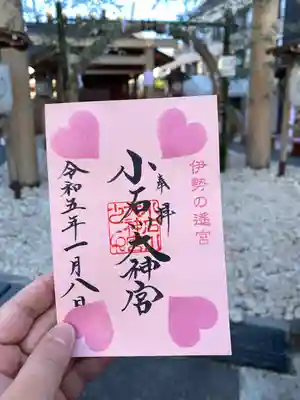 伊勢の遥宮
奉拝
小石大神宮
令和五年一月八日